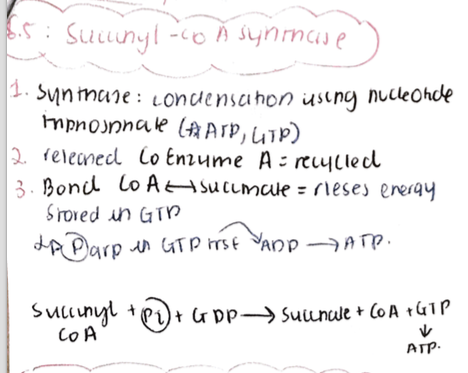 6.5: Succinyl-CoA synthase
1. Synthase: condensation using nucleotide
triphosphate (ATP, GTP)
2. released CoEnzyme A = recycled
3. Bond CoA ↔ succinate = rleses energy
Stored in GTP
P in GTP ADP → ATP.
Succinyl + Pi + GDP → Succinate + CoA + GTP
CoA ↓
ATP.